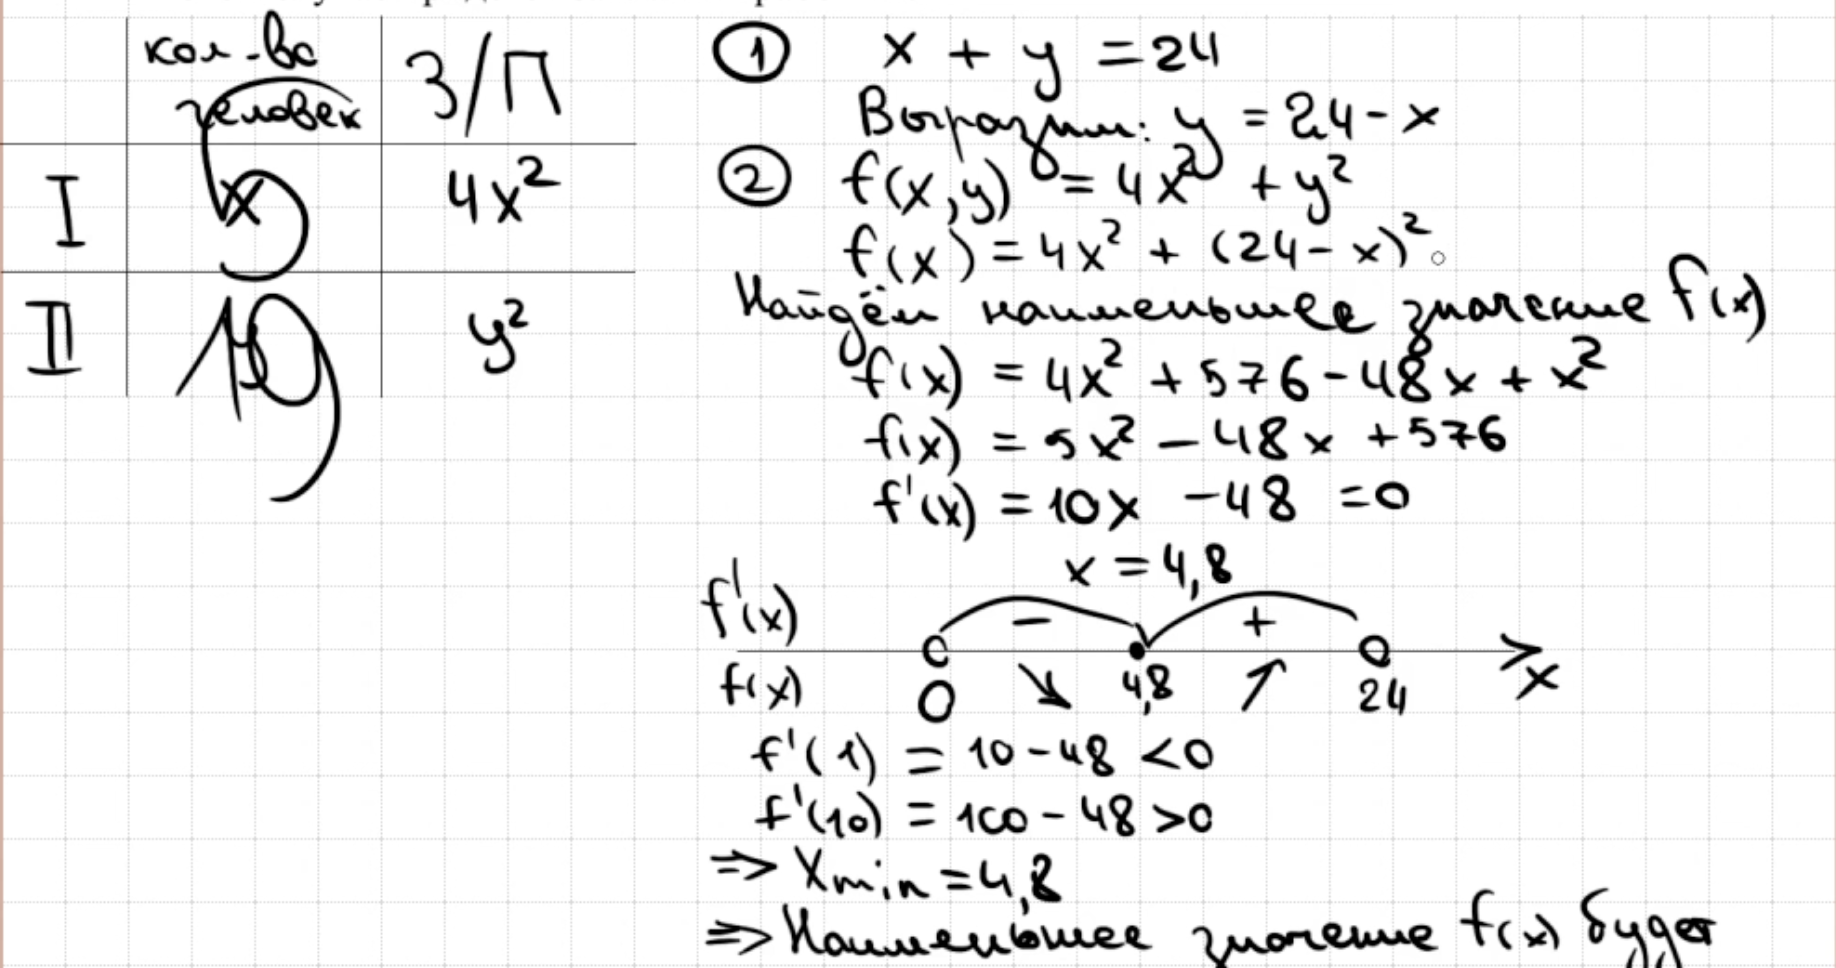 кол-во человек З/П
I x 5 4x²
II 19 y²
① x + y = 24
Выразим: y = 24 - x
② f(x,y) = 4x² + y²
f(x) = 4x² + (24 - x)²
Найдём наименьшее значение f(x)
f(x) = 4x² + 576 - 48x + x²
f(x) = 5x² - 48x + 576
f'(x) = 10x - 48 = 0
x = 4,8
f'(x) - +
f(x) 0 4,8 24 x
f'(1) = 10 - 48 < 0
f'(10) = 100 - 48 > 0
⇒ Xmin = 4,8
⇒ Наименьшее значение f(x) будет